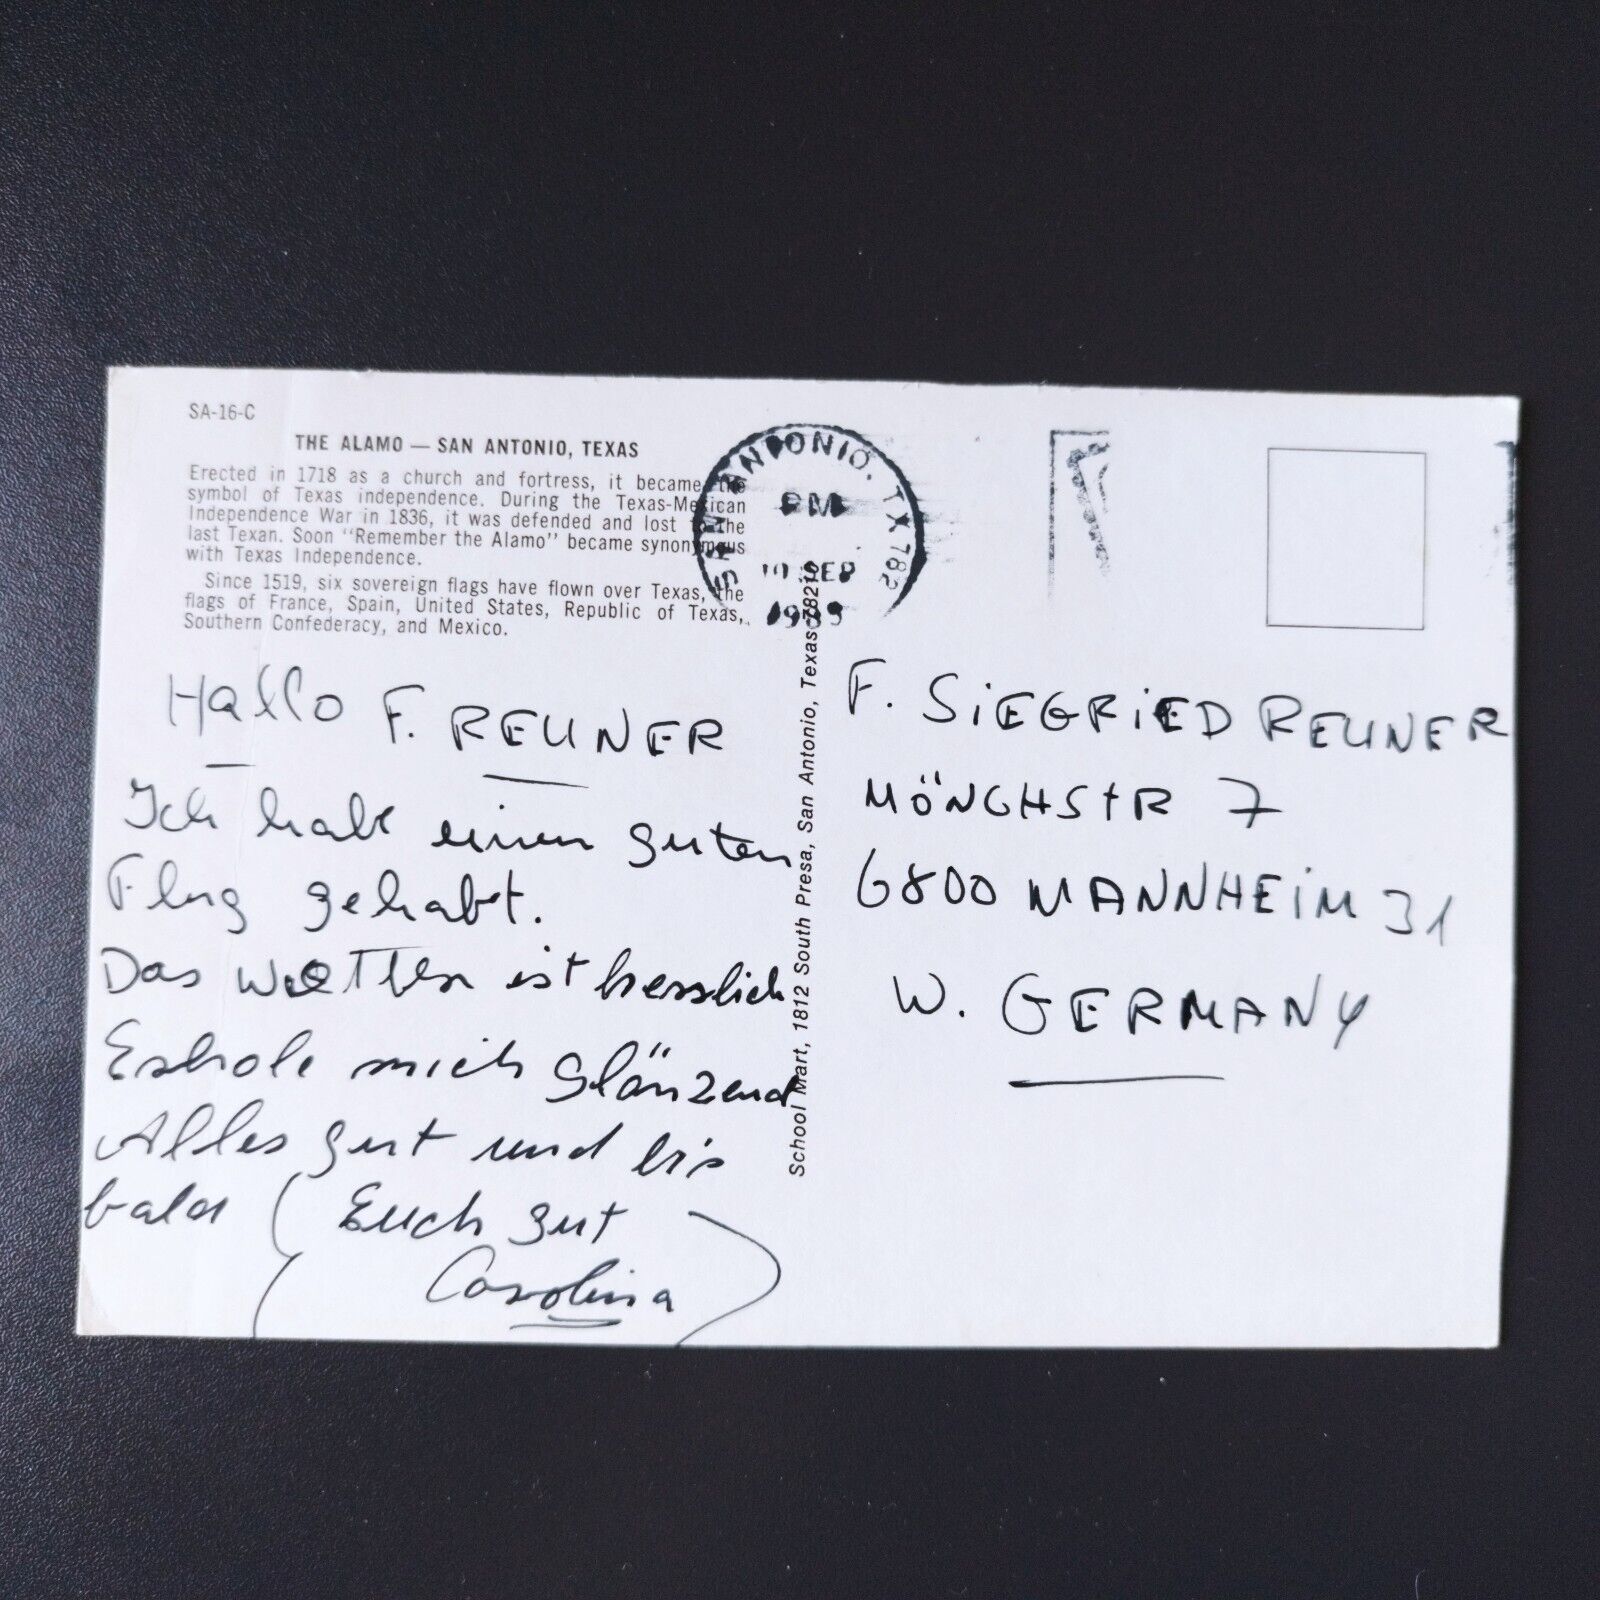 SA-16-C
THE ALAMO — SAN ANTONIO, TEXAS
Erected in 1718 as a church and fortress, it became the
symbol of Texas independence. During the Texas-Mexican
Independence War in 1836, it was defended and lost to the
last Texan. Soon "Remember the Alamo" became synonymous
with Texas Independence.
Since 1519, six sovereign flags have flown over Texas, the
flags of France, Spain, United States, Republic of Texas,
Southern Confederacy, and Mexico.
SAN ANTONIO, TX 782
PM
10 SEP
1989
Hallo F. REUNER
Ich habe einen guten
Flug gehabt.
Das Wetter ist herrlich
Erhole mich glänzend
Alles gut und bis
bald (Euch gut
Carolina)
School Mart, 1812 South Presa, San Antonio, Texas 78210
F. SiEGFRiED REUNER
MÖNCHSTR 7
6800 MANNHEiM 31
W. GERMANY